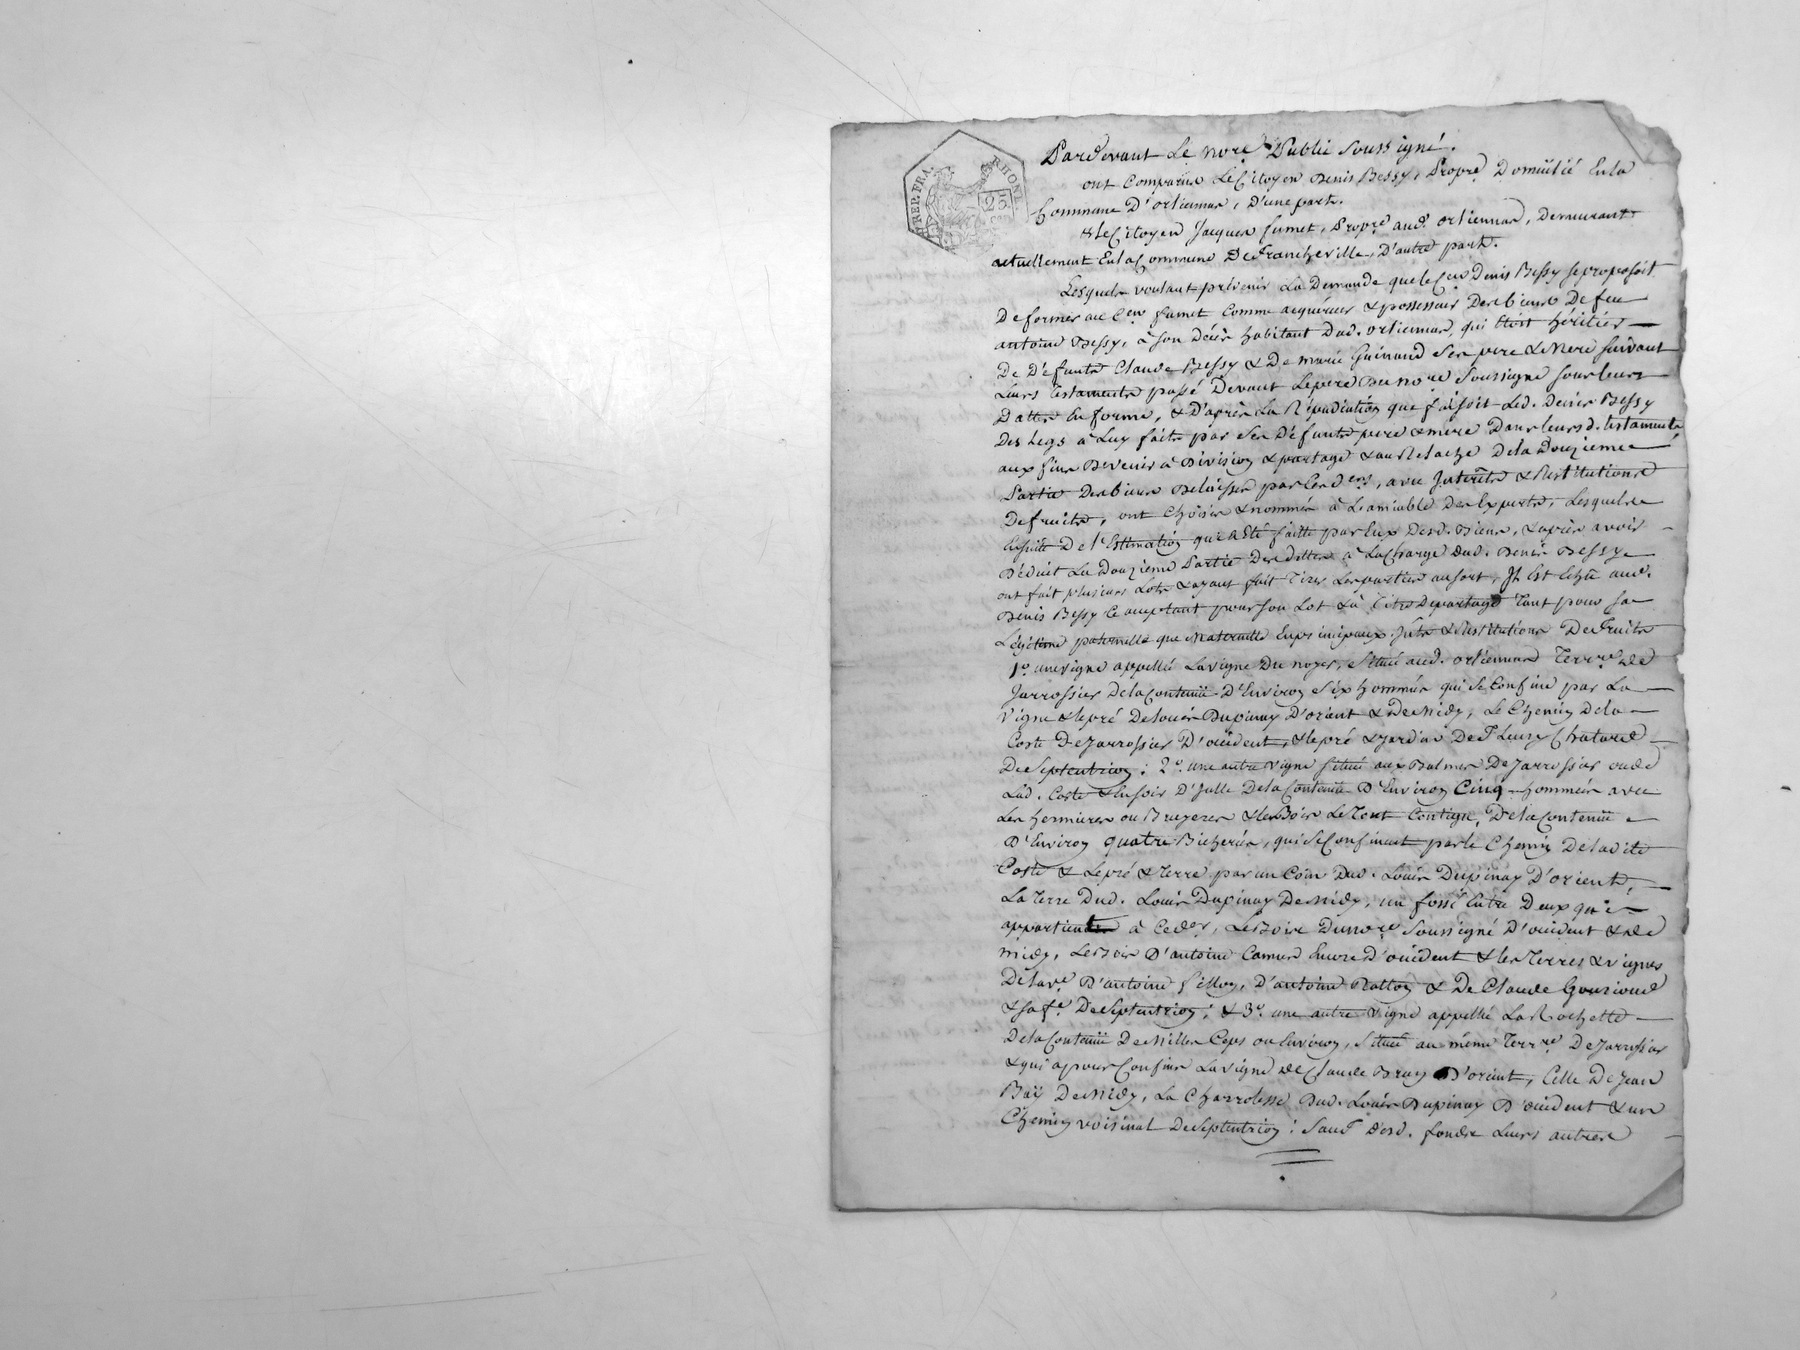 REP. FRA.
RHONE
25
Pardevant Le No.re Public Soussigné.
ont Comparus Le Citoyen Denis Bessy, Propre. Domicilié En la
Commune D'orliennas, D'une part.
& le Citoyen Jacques fumet, Propre. aud. orliennas, Demeurant
actuellement En la Commune De francheville, D'autre part.
Lesquels voulant prévenir La Demande que le Cen Denis Bessy se proposoit
De former au Cen fumet Comme acquéreur & possesseur Des biens De feu
antoine Bessy, à son Décès habitant Dud. orliennas, qui Etoit héritier
De Défunts Claude Bessy & De marie Guinand Ses pere & Mere suivant
Leurs testaments passé Devant Le pere Du no.re Soussigné sous leurs
Dattes En forme, & D'après La Répudiation que faisoit Led. Denis Bessy
Des Legs à Luy faits par Ses Défunts pere & mere Dans leursd. testaments
aux fins De venir à Division & partage & au Relache De la Douzieme
Partie Des biens Délaissés par Ces ders, avec Interêts & Restitutions
De fruits, ont Choisis & nommés à L'amiable Des Experts, Lesquels
Ensuite De l'Estimation qui a Eté faitte par Eux Desd. Biens, & après avoir
Déduit La Douzieme Partie Des Dettes à La Charge dud. Denis Bessy
ont fait plusieurs Lots & ayant fait Tirer Les parties au sort, Il Est Echu aud.
Denis Bessy Ce acceptant pour son Lot & à Titre De partage Tant pour sa
Légitime paternelle que Maternelle En principaux, Ints & Restitutions De fruits
1.o une vigne appellée La vigne Du noyer, située aud. orliennas Terr.re De
Jarrossier De la Contenüe D'Environ Six hommées qui se Confine par La
Vigne & le pré De Louis Dupinay D'orient & De Midy, Le Chemin De la
Coste De Jarrossier D'occident, & le pré & Jardin De fleury Chatard
De Septentrion; 2.o une autre vigne située aux Balmes De Jarrossier ou de
Lad. Coste & En soir D' De la Contenüe D'Environ Cinq hommées avec
Les hermures ou Bruyeres & les Bois Le Tout Contigu, De la Contenüe
D'Environ quatre Bicherées, qui Se Confinent par le Chemin De ladite
Coste & Le pré & Terre par un Coin Dud. Louis Dupinay D'orient,
La Terre Dud. Louis Dupinay De Midy, un fossé Entre Deux qui
appartient à Ce der, Le Bois Du no.re Soussigné D'occident & de
midy, Le Bois D'antoine Camus Encore D'occident & les Terres & vignes
De la ve. D'antoine , D'antoine Ratton & De Claude
& sa fe. De Septentrion; & 3.o une autre Vigne appellée La Rochette
De la Contenüe De Milles Ceps ou Environ, Située au même Terr.re De Jarrossier
& qui a pour Confins La vigne de Claude Bruy D'orient, Celle De Jean
Baÿ De Midy, La Dud. Louis Dupinay D'occident & un
Chemin voisinal De Septentrion; Sauf Desd. fonds Leurs autres